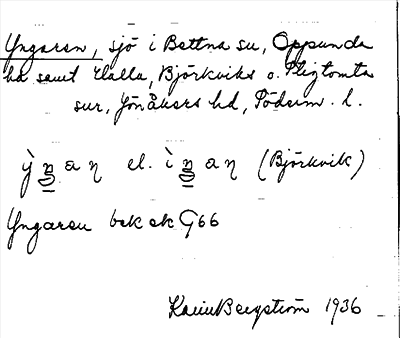 Yngaren, sjö i Bettna su, Oppunda
hd samt Halla, Björkviks o. Vrigtomta
sur, Jönåkers hd, Söderm. l.
ỳn̲an el. ìn̲an (Björkvik)
Yngaren bok ek G66
Karin Bergström 1936